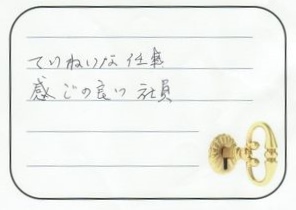 ていねいな仕事
感じの良い社員